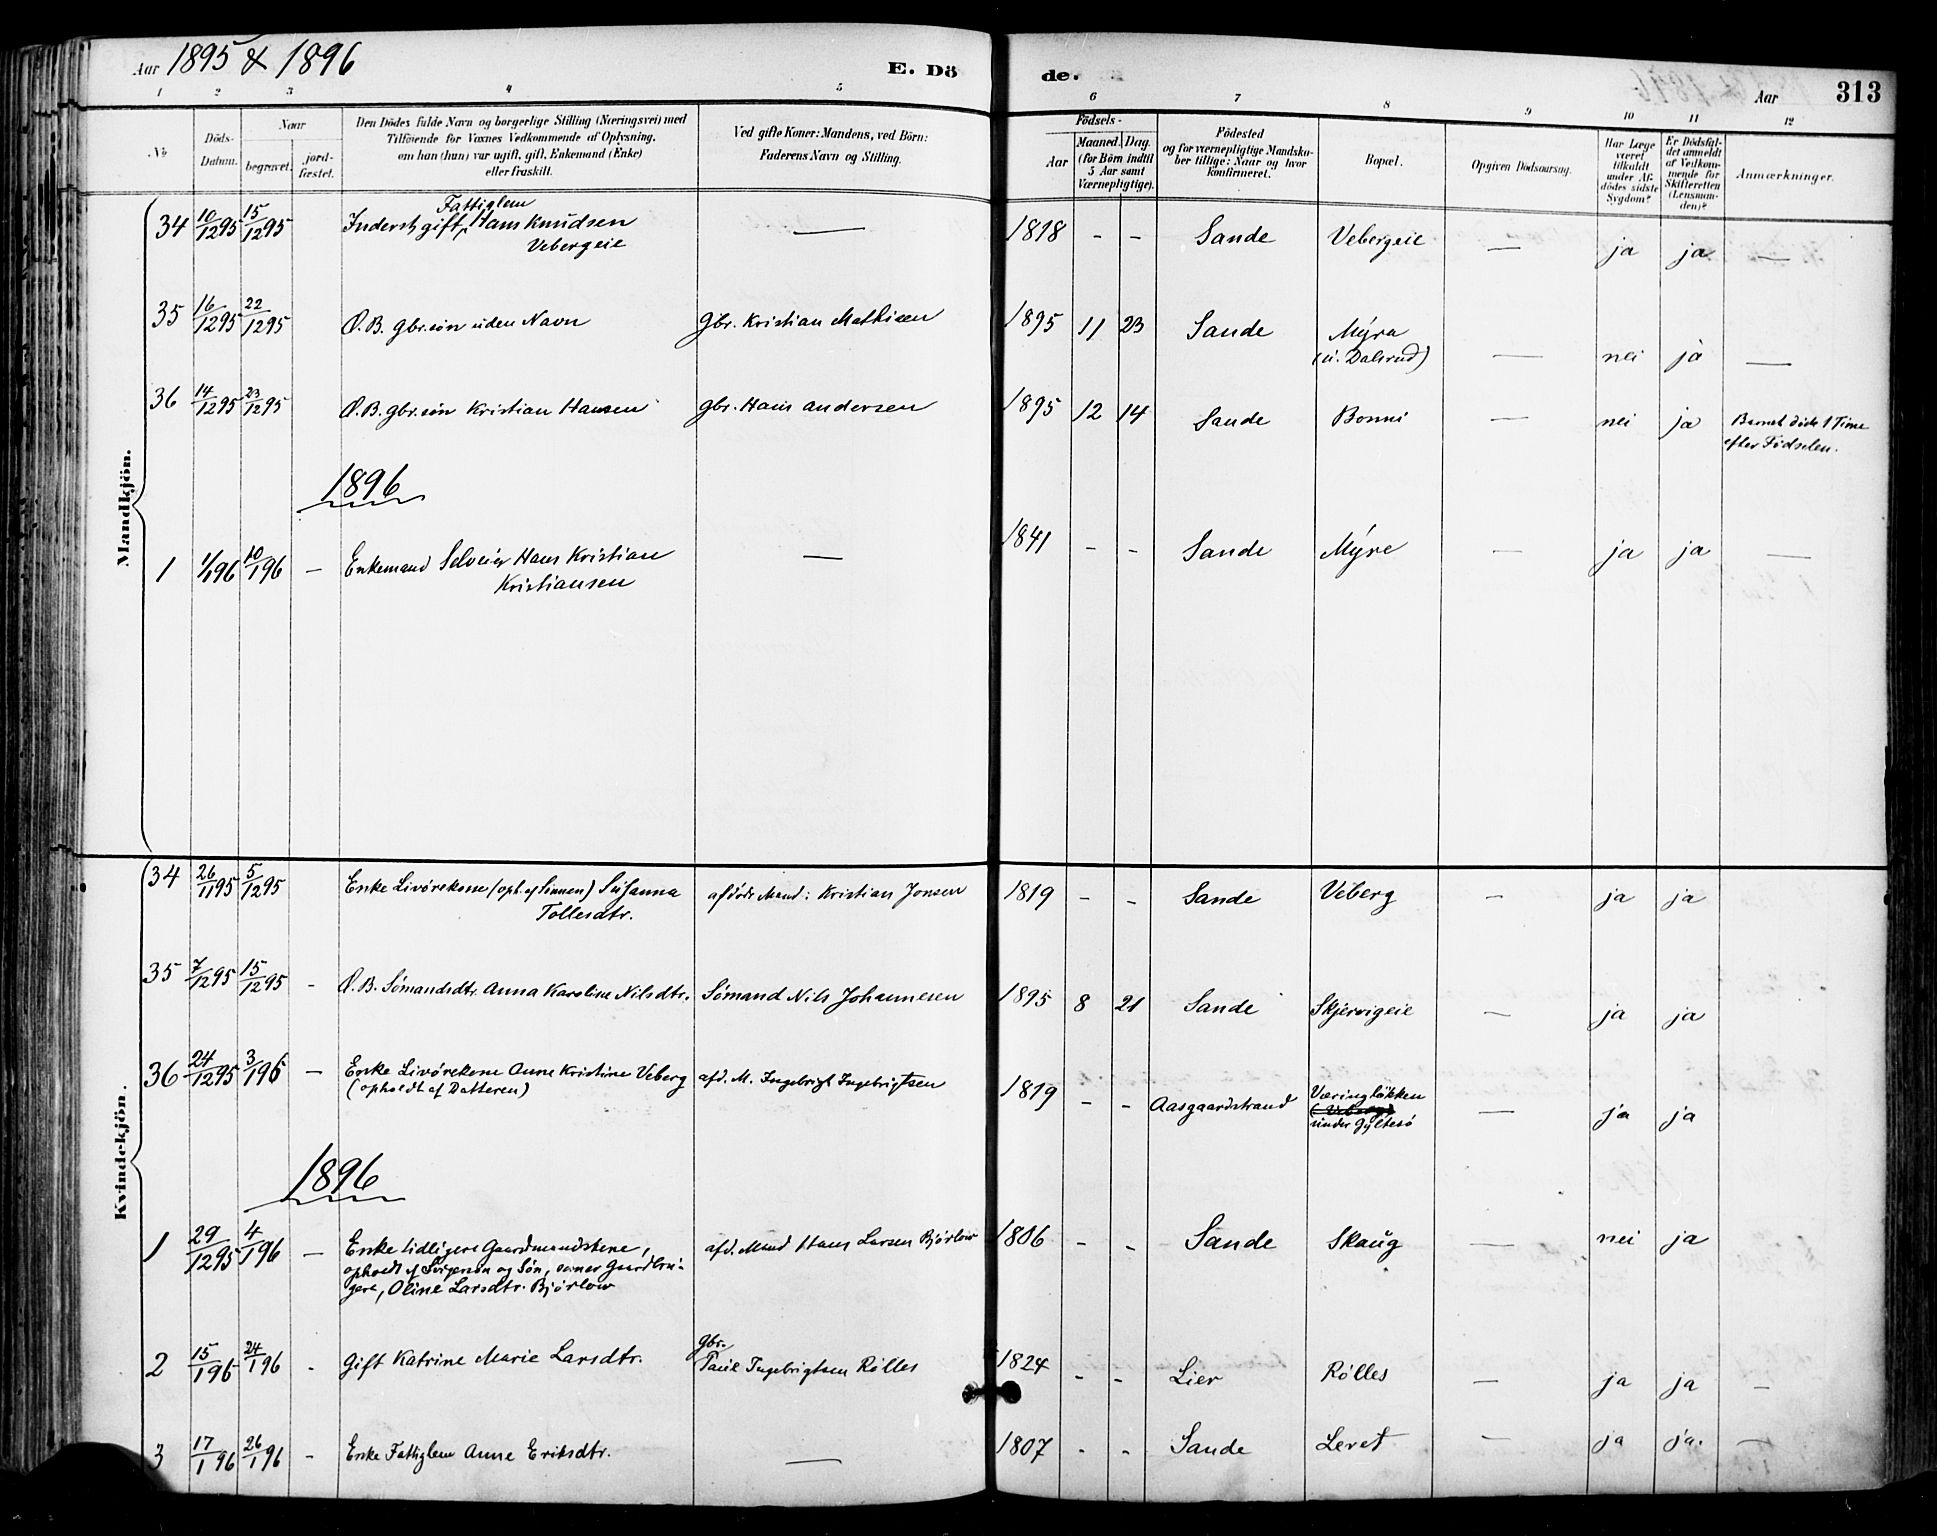 Aar 1895 & 1896 E. Dö de. Aar 313
1 2 3 4 5 6 7 8 9 10 11 12
No
Döds-Datum.
Naar
begravet.
jord-fæstet.
Den Dödes fulde Navn og borgerlige Stilling (Næringsvei) med
Tilföiende for Voxnes Vedkommende af Oplysning,
om han (hun) var ugift, gift, Enkemand (Enke)
eller fraskilt.
Ved gifte Koner: Mandens, ved Börn:
Faderens Navn og Stilling.
Födsels-
Aar
Maaned. Dag.
(for Börn indtil
5 Aar samt
Værnepligtige).
Födested
og for værnepligtige Mandska-
ber tillige: Naar og hvor
konfirmeret.
Bopæl.
Opgiven Dödsaarsag.
Har Læge
været
tilkaldt
under Af-
dödes sidste
Sygdom?
Er Dödsfal-
det anmeldt
af Vedkom-
mende for
Skifteretten
(Lensman-
den)?
Anmærkninger.
Mandkjön.
Fattiglem
34 10/12 95 15/12 95 Inderst gift, Hans Knudsen — 1818 - - Sande Vebergeie — ja ja —
Vebergeie
35 16/12 95 22/12 95 Ø. B. gbr.søn uden Navn Gbr. Kristian Mathisen 1895 11 23 Sande Mÿra — nei ja —
(u. Dalsrud)
36 14/12 95 23/12 95 Ø. B. gbr.søn Kristian Hansen gbr. Hans Andersen 1895 12 14 Sande Bonni — nei ja Barnet døde 1 Time
efter Fødselen.
1896
1 1/1 96 10/1 96 — Enkemand Selveier Hans Kristian — 1841 - - Sande Mÿre — ja ja —
Kristiansen
Kvindekjön.
34 26/11 95 5/12 95 Enke Livørekone (oph. af Sønnen) Susanna afdøde Mand: Kristian Jonsen 1819 - - Sande Veberg — ja ja
Tollesdtr.
35 7/12 95 15/12 95 - Ø. B. Sømandsdtr. Anna Karoline Nilsdtr. Sømand Nils Johannesen 1895 8 21 Sande Skjervigeie — ja ja
36 24/12 95 3/1 96 — Enke Livørekone Anne Kristine Veberg afd. M. Ingebrigt Ingebrigtsen 1819 - - Aasgaardstrand Væringløkken — ja ja
(opholdt af Datteren)
(Veberg)
under Gyltesø
1896
1 29/12 95 4/1 96 — Enke tidligere Gaardmandskone, afd. Mand Hans Larsen Bjørlow 1806 - - Sande Skaug — nei ja
opholdt af Svigersøn og Søn,
gere, Oline Larsdtr. Bjørlow
gbr.
2 15/1 96 24/1 96 - Gift Katrine Marie Larsdtr. Paul Ingebrigtsen Rølles 1824 - - Lier Rølles — ja ja —
3 17/1 96 26/1 96 - Enke Fattiglem Anne Eriksdtr. — 1807 - - Sande Leret — ja ja. —